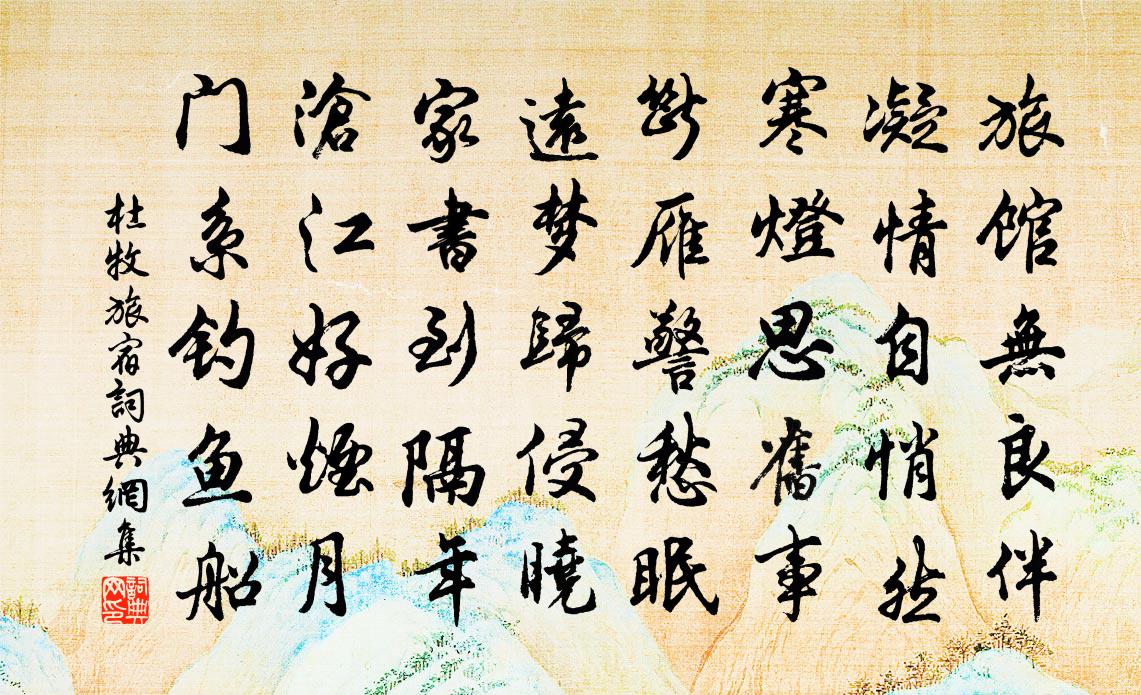 旅馆無良伴
凝情自悄然
寒燈思舊事
斷雁警愁眠
遠梦歸侵曉
家書到隔年
滄江好煙月
门系钓鱼船
杜牧旅宿詞典網集
詞典网印